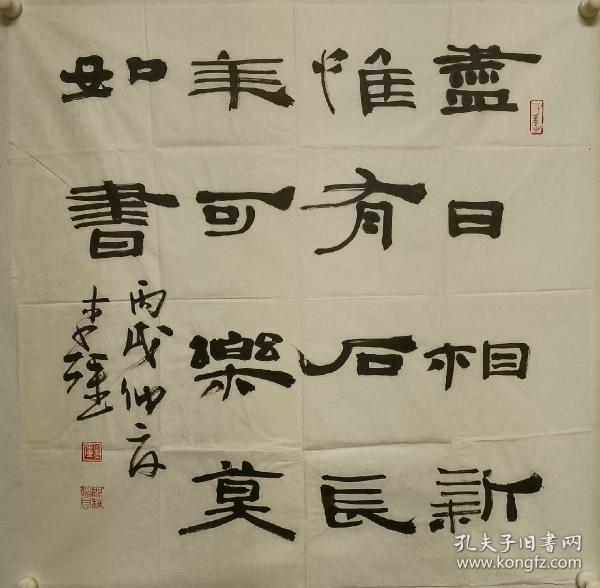 盡日相新
惟有石長
年可樂莫
如書
丙戌仲
孔夫子旧书网
www.kongfz.com